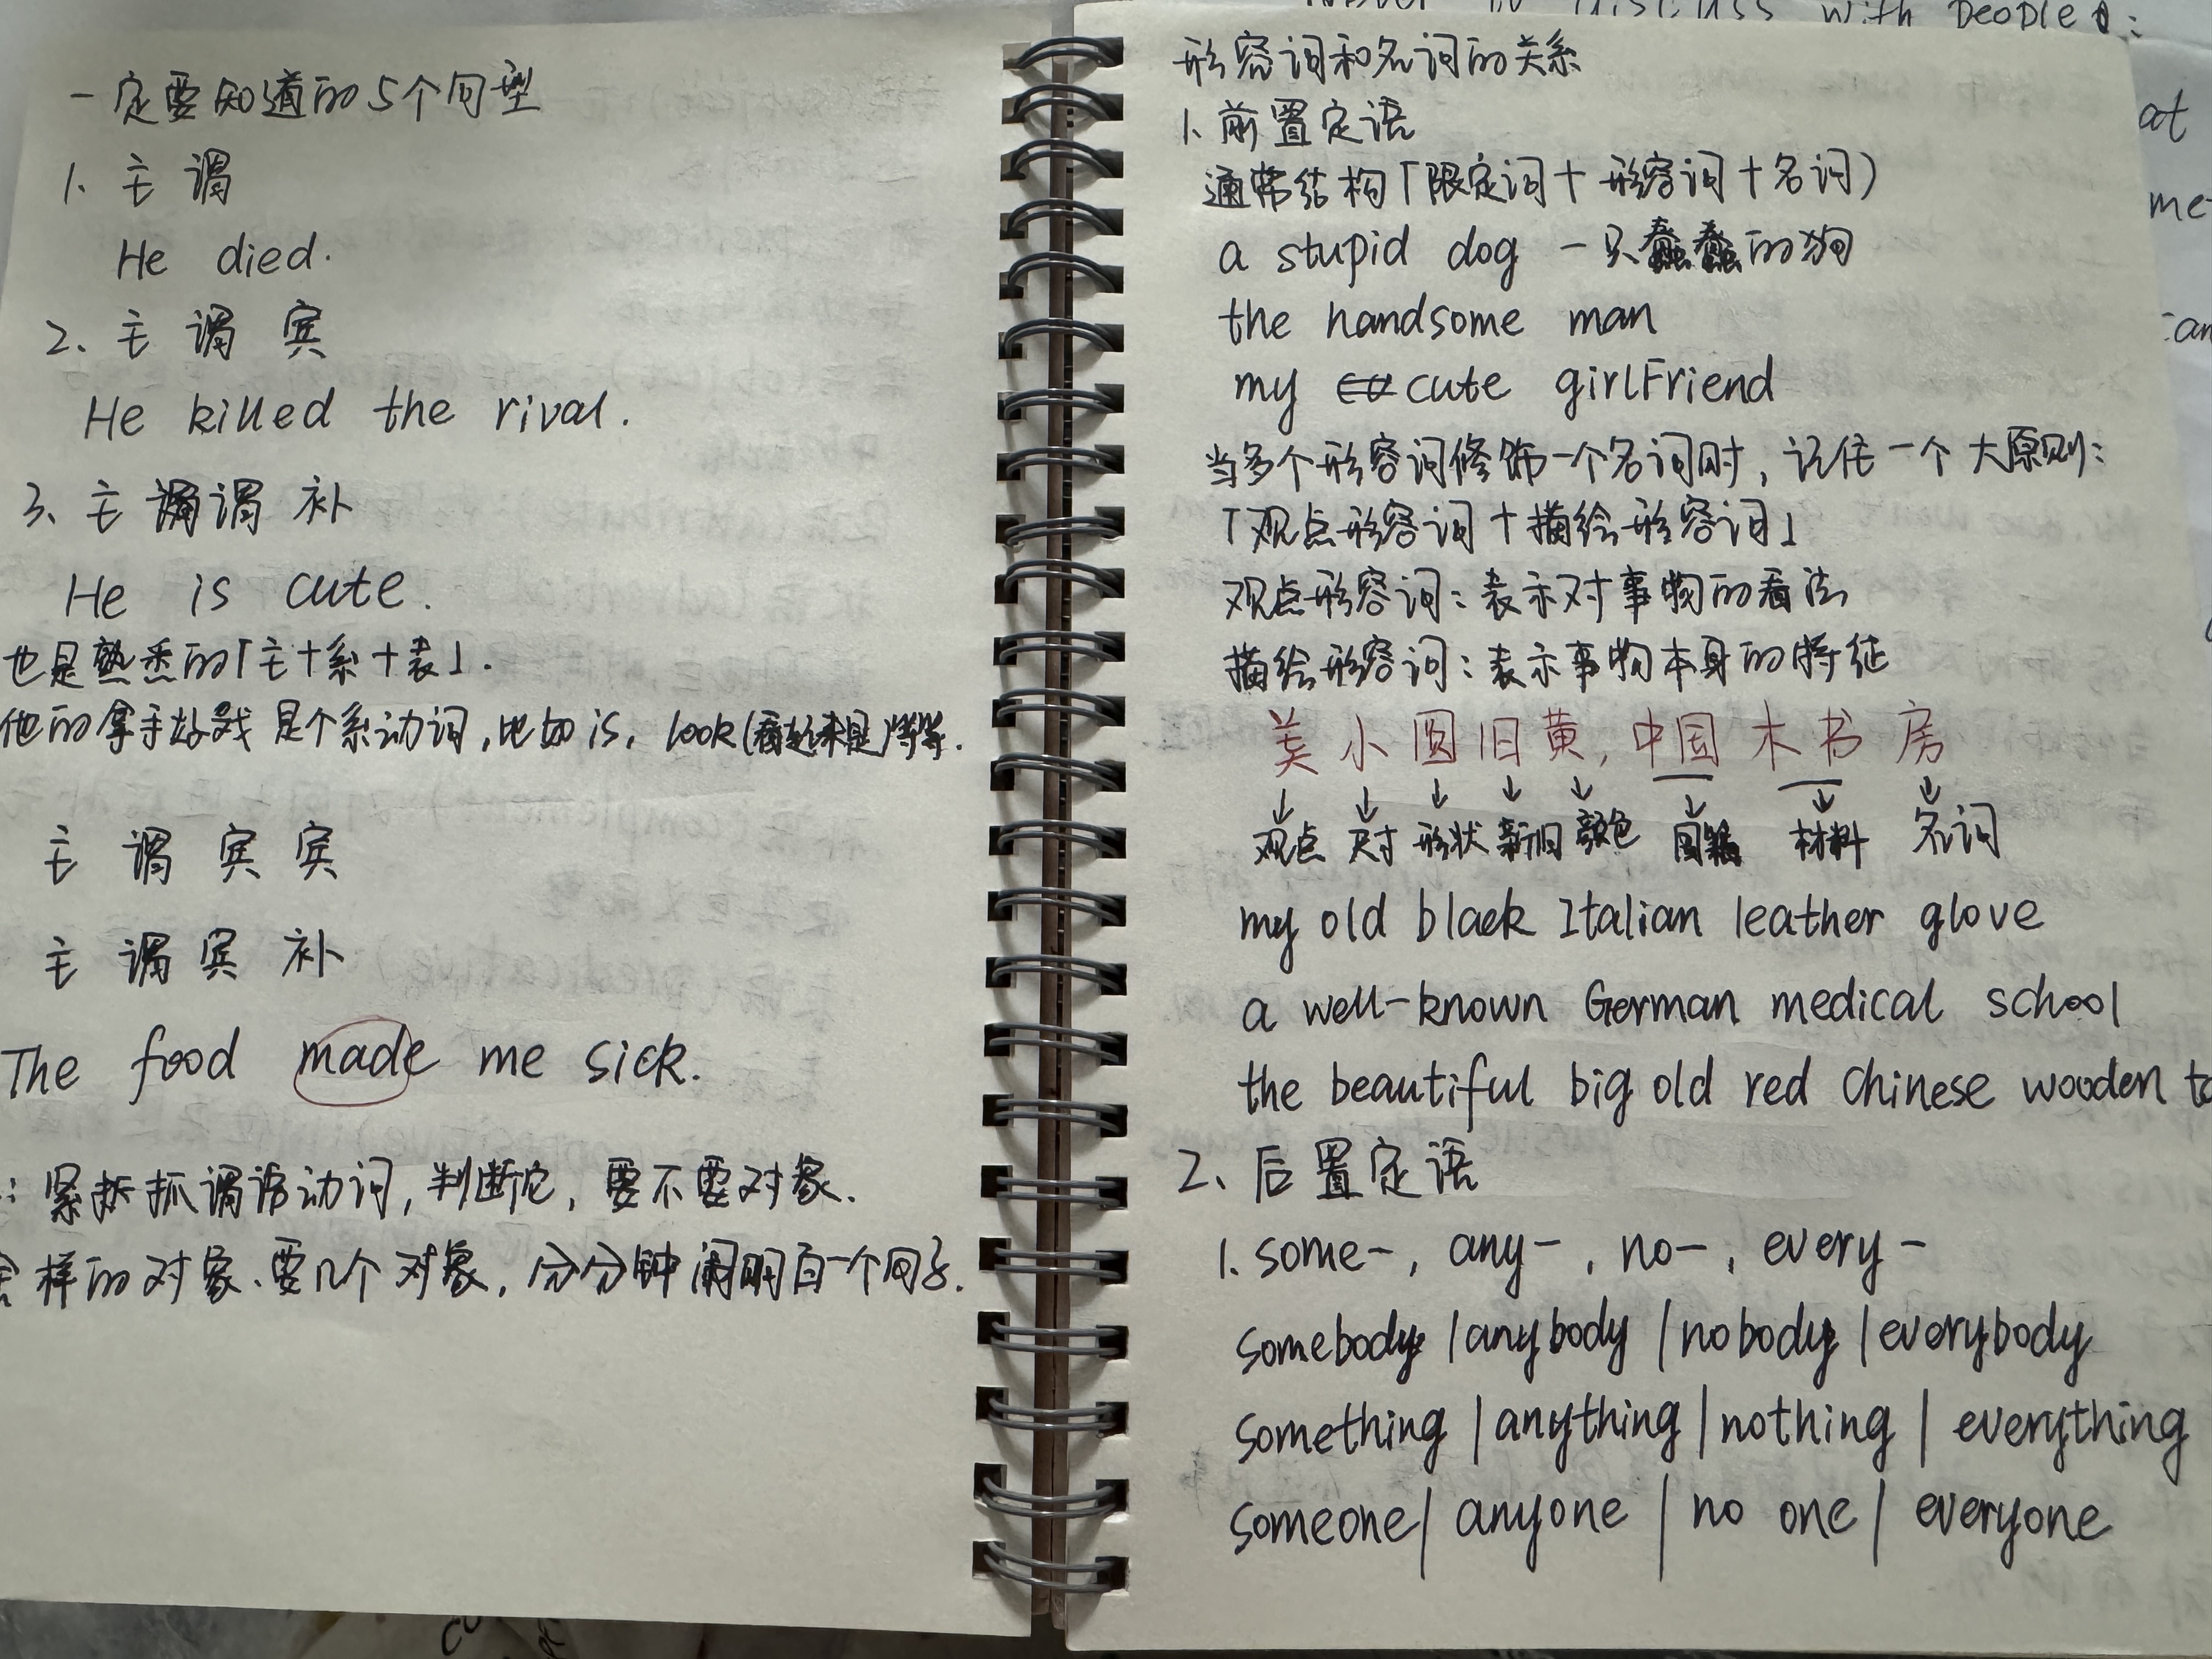 一定要知道的5个句型
1、主 谓
He died.
2、主 谓 宾
He killed the rival.
3、主 谓 补
He is cute.
也是熟悉的「主+系+表」.
他的拿手好戏 是个系动词,比如is, look(看起来是)等等.
主 谓 宾 宾
主 谓 宾 补
The food made me sick.
: 紧抓谓语动词,判断它,要不要对象.
样的对象、要几个对象,分分钟 明白一个句子.
with people:
形容词和名词的关系
1、前置定语
通常结构「限定词+形容词+名词)
a stupid dog 一只蠢蠢的狗
the handsome man
my cute girlFriend
当多个形容词修饰一个名词时,记住一个大原则:
「观点形容词+描绘形容词」
观点形容词:表示对事物的看法
描绘形容词:表示事物本身的特征
美小圆旧黄,中国木书房
↓ ↓ ↓ ↓ ↓ ↓ ↓ ↓
观点 尺寸 形状 新旧 颜色 国籍 材料 名词
my old black Italian leather glove
a well-known German medical school
the beautiful big old red Chinese wooden
2、后置定语
1. some-, any-, no-, every-
somebody |anybody |nobody |everybody
something |anything |nothing | everything
someone| anyone | no one | everyone
at
me